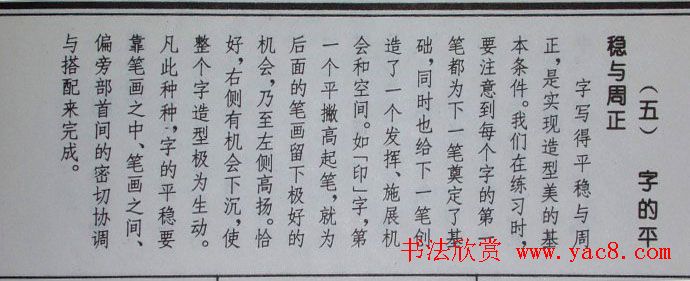 （五） 字的平
稳与周正
字写得平稳与周
正，是实现造型美的基
本条件。我们在练习时，
要注意到每个字的第一
笔都为下一笔奠定了基
础，同时也给下一笔创
造了一个发挥、施展机
会和空间。如「印」字，第
一个平撇高起笔，就为
后面的笔画留下极好的
机会，乃至左侧高扬。恰
好，右侧有机会下沉，使
整个字造型极为生动。
凡此种种，字的平稳要
靠笔画之中、笔画之间、
偏旁部首间的密切协调
与搭配来完成。
书法欣赏 www.yac8.com